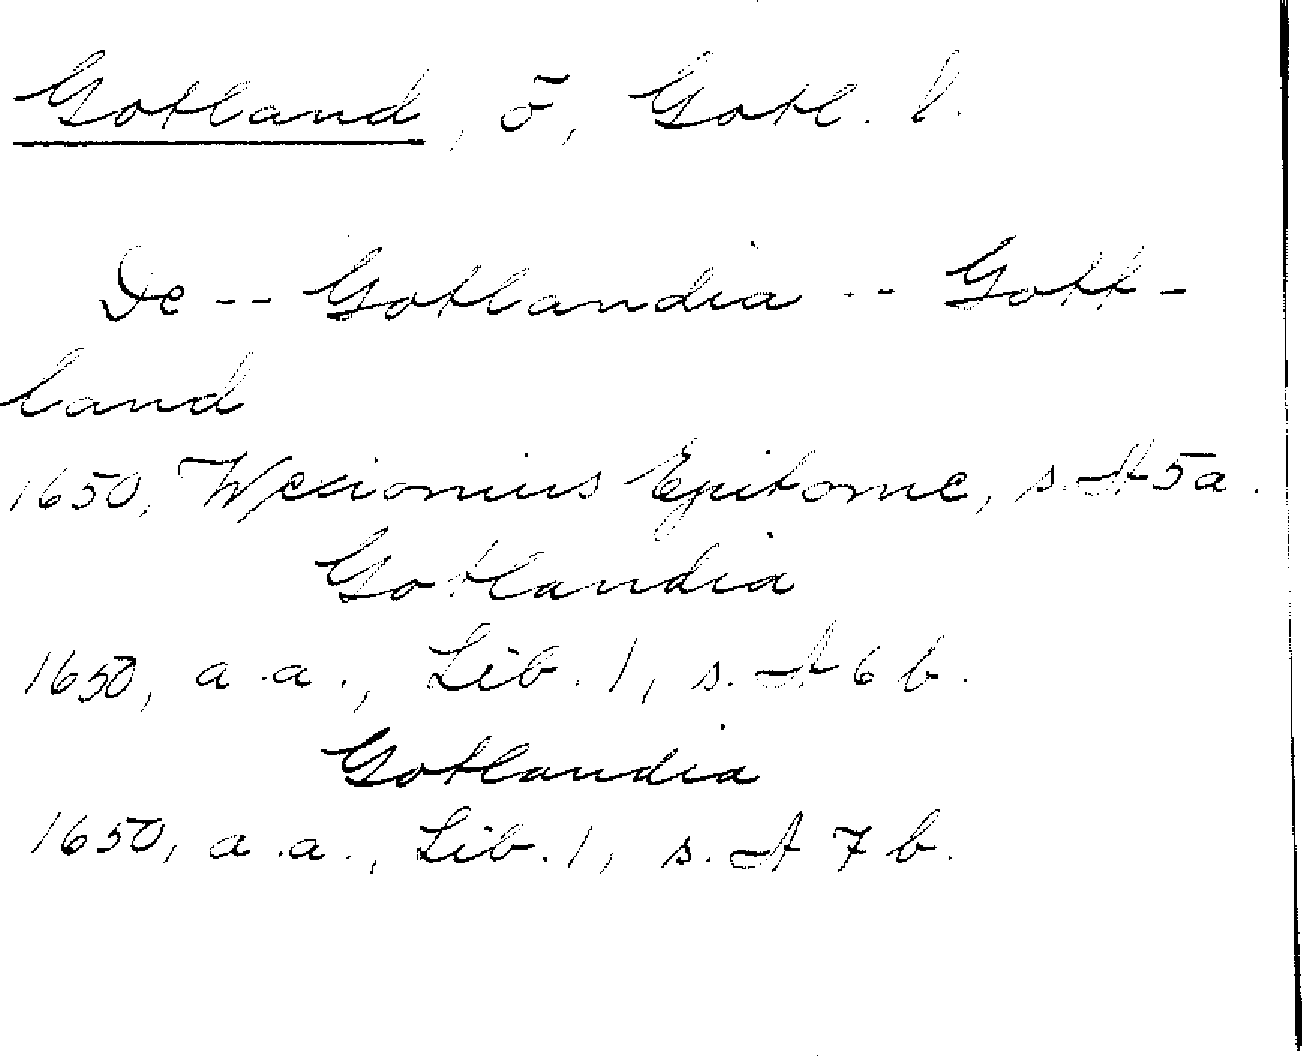 Gotland, ö, Gotl. l.
De -- Gotlandia -- Gott-
land
1650, Wexionius Epitome, s. A 5 a.
Gotlandia
1650, a.a., Lib. 1, s. A 6 b.
Gotlandia
1650, a.a., Lib. 1, s. A 7 b.